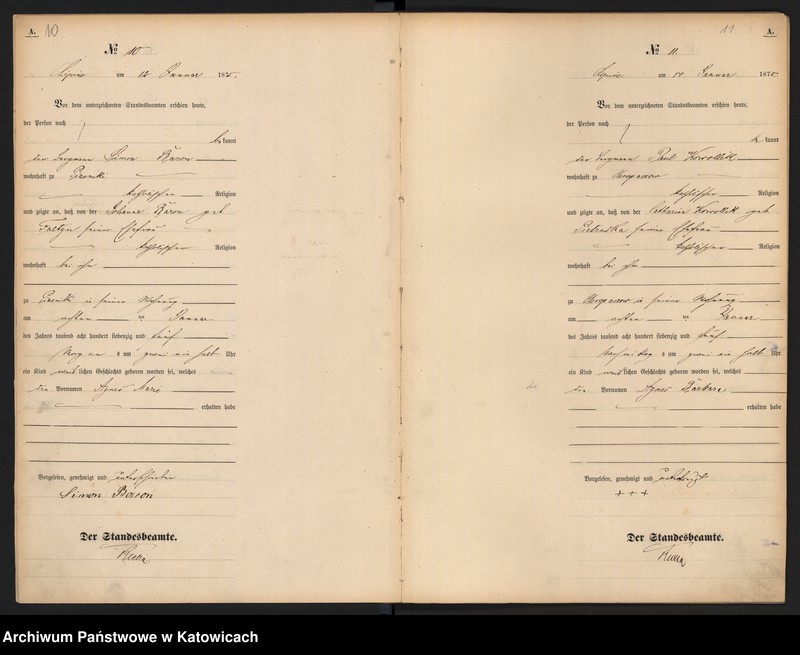 A. 10
№ 10
am 12 Januar 1875.
Vor dem unterzeichneten Standesbeamten erschien heute,
der Person nach
be kannt
der Bergmann Simon Baron
wohnhaft zu
katholischer Religion
und zeigte an, daß von der Johanna Baron geb
seiner Ehefrau
katholischer Religion
wohnhaft bei ihm
zu in seiner Wohnung
am achten Januar
des Jahres tausend acht hundert siebenzig und fünf
Morgens um zwei ein halb Uhr
ein Kind weiblichen Geschlechts geboren worden sei, welches
die Vornamen Agnes Marie
erhalten habe
Vorgelesen, genehmigt und unterschrieben
Simon Baron
Der Standesbeamte.
11 A.
№ 11
am 14 Januar 1875.
Vor dem unterzeichneten Standesbeamten erschien heute,
der Person nach
be kannt
der Bergmann Paul Kowollik
wohnhaft zu
katholischer Religion
und zeigte an, daß von der Catharina Kowollik geb
seiner Ehefrau
katholischer Religion
wohnhaft bei ihm
zu in seiner Wohnung
am achten Januar
des Jahres tausend acht hundert siebenzig und fünf
Nachmittag um zwei ein halb Uhr
ein Kind weiblichen Geschlechts geboren worden sei, welches
die Vornamen Agnes Barbara
erhalten habe
Vorgelesen, genehmigt und
+ + +
Der Standesbeamte.
Archiwum Państwowe w Katowicach